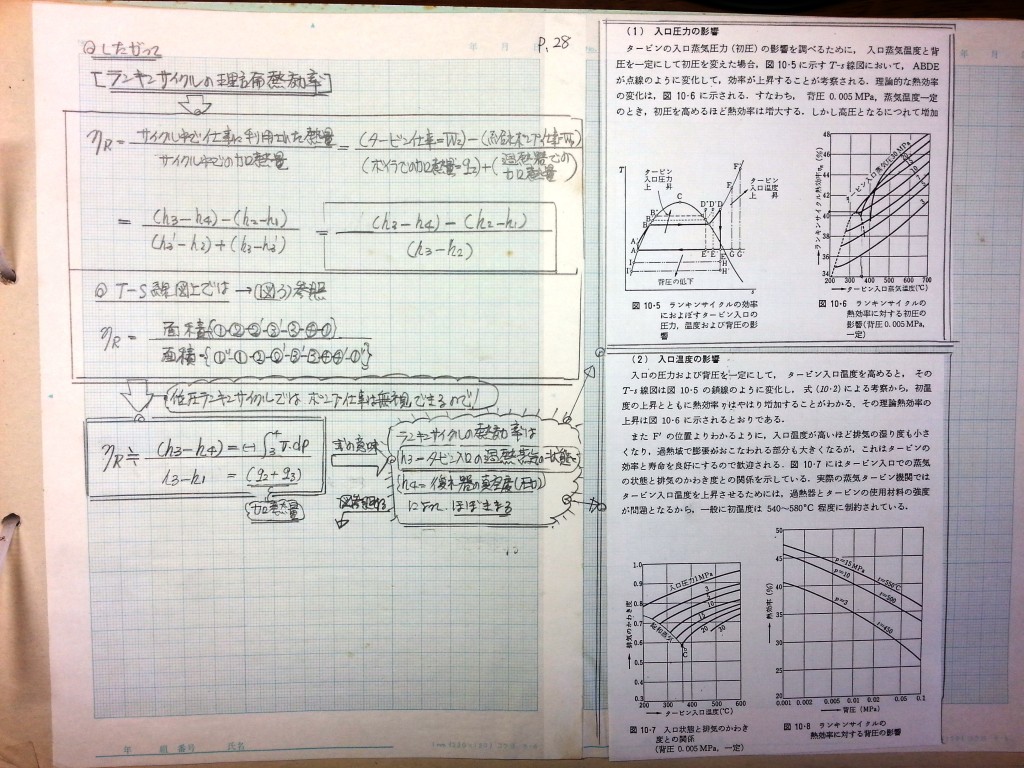 ◎したがって
P. 28
[ランキンサイクルの理論熱効率]
ηR = サイクル中で仕事に利用された熱量 / サイクル中での加熱量 = (タービン仕事=W2) − / (ボイラでの加熱量=q2) + (過熱器での加熱量)
= (h3−h4)−(h2−h1) / (h3'−h2)+(h3−h3') = (h3−h4)−(h2−h1) / (h3−h2)
◎ T-S線図上では → (図3)参照
ηR = 面積 / 面積
低圧ランキンサイクルでは ポンプ仕事は無視できるので
ηR ≒ (h3−h4) / h3−h1 = (−)∫ v.dp / (q2+q3)
加熱量
式の意味
ランキンサイクルの熱効率は
h3=タービン入口の過熱蒸気の状態と
h4=復水器の真空度(圧力)
によって ほぼきまる
(1) 入口圧力の影響
タービンの入口蒸気圧力(初圧)の影響を調べるために,入口蒸気温度と背
圧を一定にして初圧を変えた場合,図10·5に示すT-s線図において,ABDE
が点線のように変化して,効率が上昇することが考察される.理論的な熱効率
の変化は,図10·6に示される.すなわち,背圧0.005MPa,蒸気温度一定
のとき,初圧を高めるほど熱効率は増大する.しかし高圧となるにつれて増加
T
タービン
入口圧力
上 昇
タービン
入口温度
上 昇
背圧の低下
s
図10·5 ランキンサイクルの効率
におよぼすタービン入口の
圧力,温度および背圧の影
響
48
46
44
42
40
38
36
34
ランキンサイクル熱効率ηR (%)
タービン入口蒸気圧力30 MPa
200 300 400 500 600 700
タービン入口蒸気温度(℃)
図10·6 ランキンサイクルの
熱効率に対する初圧の
影響(背圧0.005MPa,
一定)
(2) 入口温度の影響
入口の圧力および背圧を一定にして,タービン入口温度を高めると,その
T-s線図は図10·5の鎖線のように変化し,式(10·2)による考察から,初温
度の上昇とともに熱効率ηはやはり増加することがわかる.その理論熱効率の
上昇は図10·6に示されるとおりである.
またF'の位置よりわかるように,入口温度が高いほど排気の湿り度も小さ
くなり,過熱域で膨張がおこなわれる部分も大きくなるが,これはタービンの
効率と寿命を良好にするので歓迎される.図10·7にはタービン入口での蒸気
の状態と排気のかわき度との関係を示している.実際の蒸気タービン機関では
タービン入口温度を上昇させるためには,過熱器とタービンの使用材料の強度
が問題となるから,一般に初温度は540~580°C程度に制約されている.
1.0
0.9
0.8
0.7
0.6
0.5
0.4
0.3
排気のかわき度
入口圧力1MPa
3
5
10
15
20 30
飽和蒸気
C
200 300 400 500 600
タービン入口温度(℃)
図10·7 入口状態と排気のかわき
度との関係
(背圧0.005MPa,一定)
50
45
40
35
30
25
20
熱効率 (%)
p=15MPa
p=10
p=2
t=550℃
t=500
t=450
0.001 0.002 0.005 0.01 0.02 0.05 0.1
背圧 (MPa)
図10·8 ランキンサイクルの
熱効率に対する背圧の影響
年 組 番号 氏名